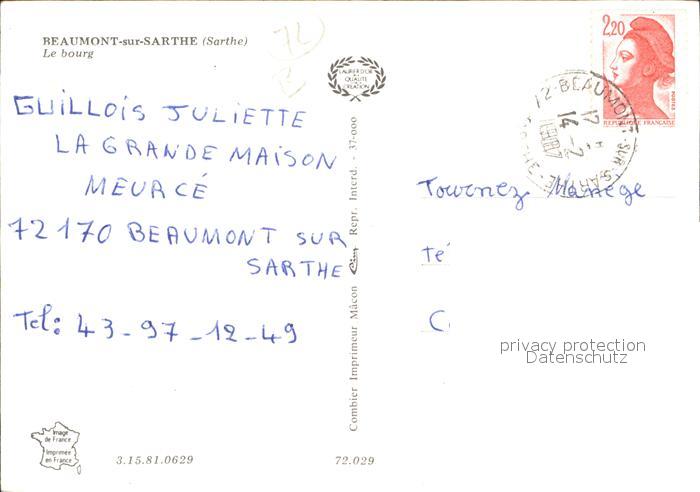 BEAUMONT-sur-SARTHE (Sarthe)
Le bourg
72
LAURIER D'OR
DE LA
QUALITÉ
CRÉATION
GUILLOIS JULIETTE
LA GRANDE MAISON
MEURCÉ
72170 BEAUMONT SUR
SARTHE
Tel: 43-97-12-49
Combier Imprimeur Mâcon Cim Repr. Interd. - 37-000
Image
de France
Imprimée
en France
3.15.81.0629
72.029
2,20
POSTES
REPUBLIQUE FRANÇAISE
72-BEAUMONT-SUR-SARTHE
17 H
14-2
1987
Tournez Manège
Té
C
privacy protection
Datenschutz